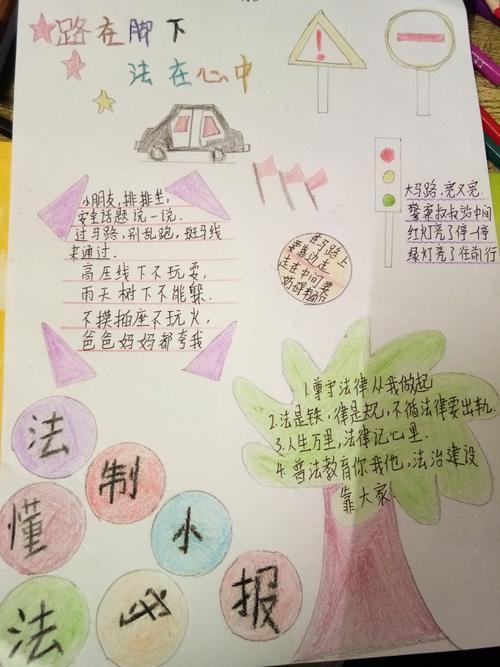 路在脚下
法在心中
小朋友,排排坐,
安全话题说一说.
过马路,别乱跑,斑马线
来通过.
高压线下不玩耍,
雨天树下不能躲.
不摸插座不玩火,
爸爸妈妈都夸我
走在中间要
大马路,宽又宽.
警察叔叔站中间
红灯亮了停一停
绿灯亮了在前行
1.尊守法律从我做起
2.法是铁,律是规,不循法律要出轨.
3.人生万里,法律记心里.
4.普法教育你我他,法治建设
靠大家.
法
制
懂
小
法
必
报